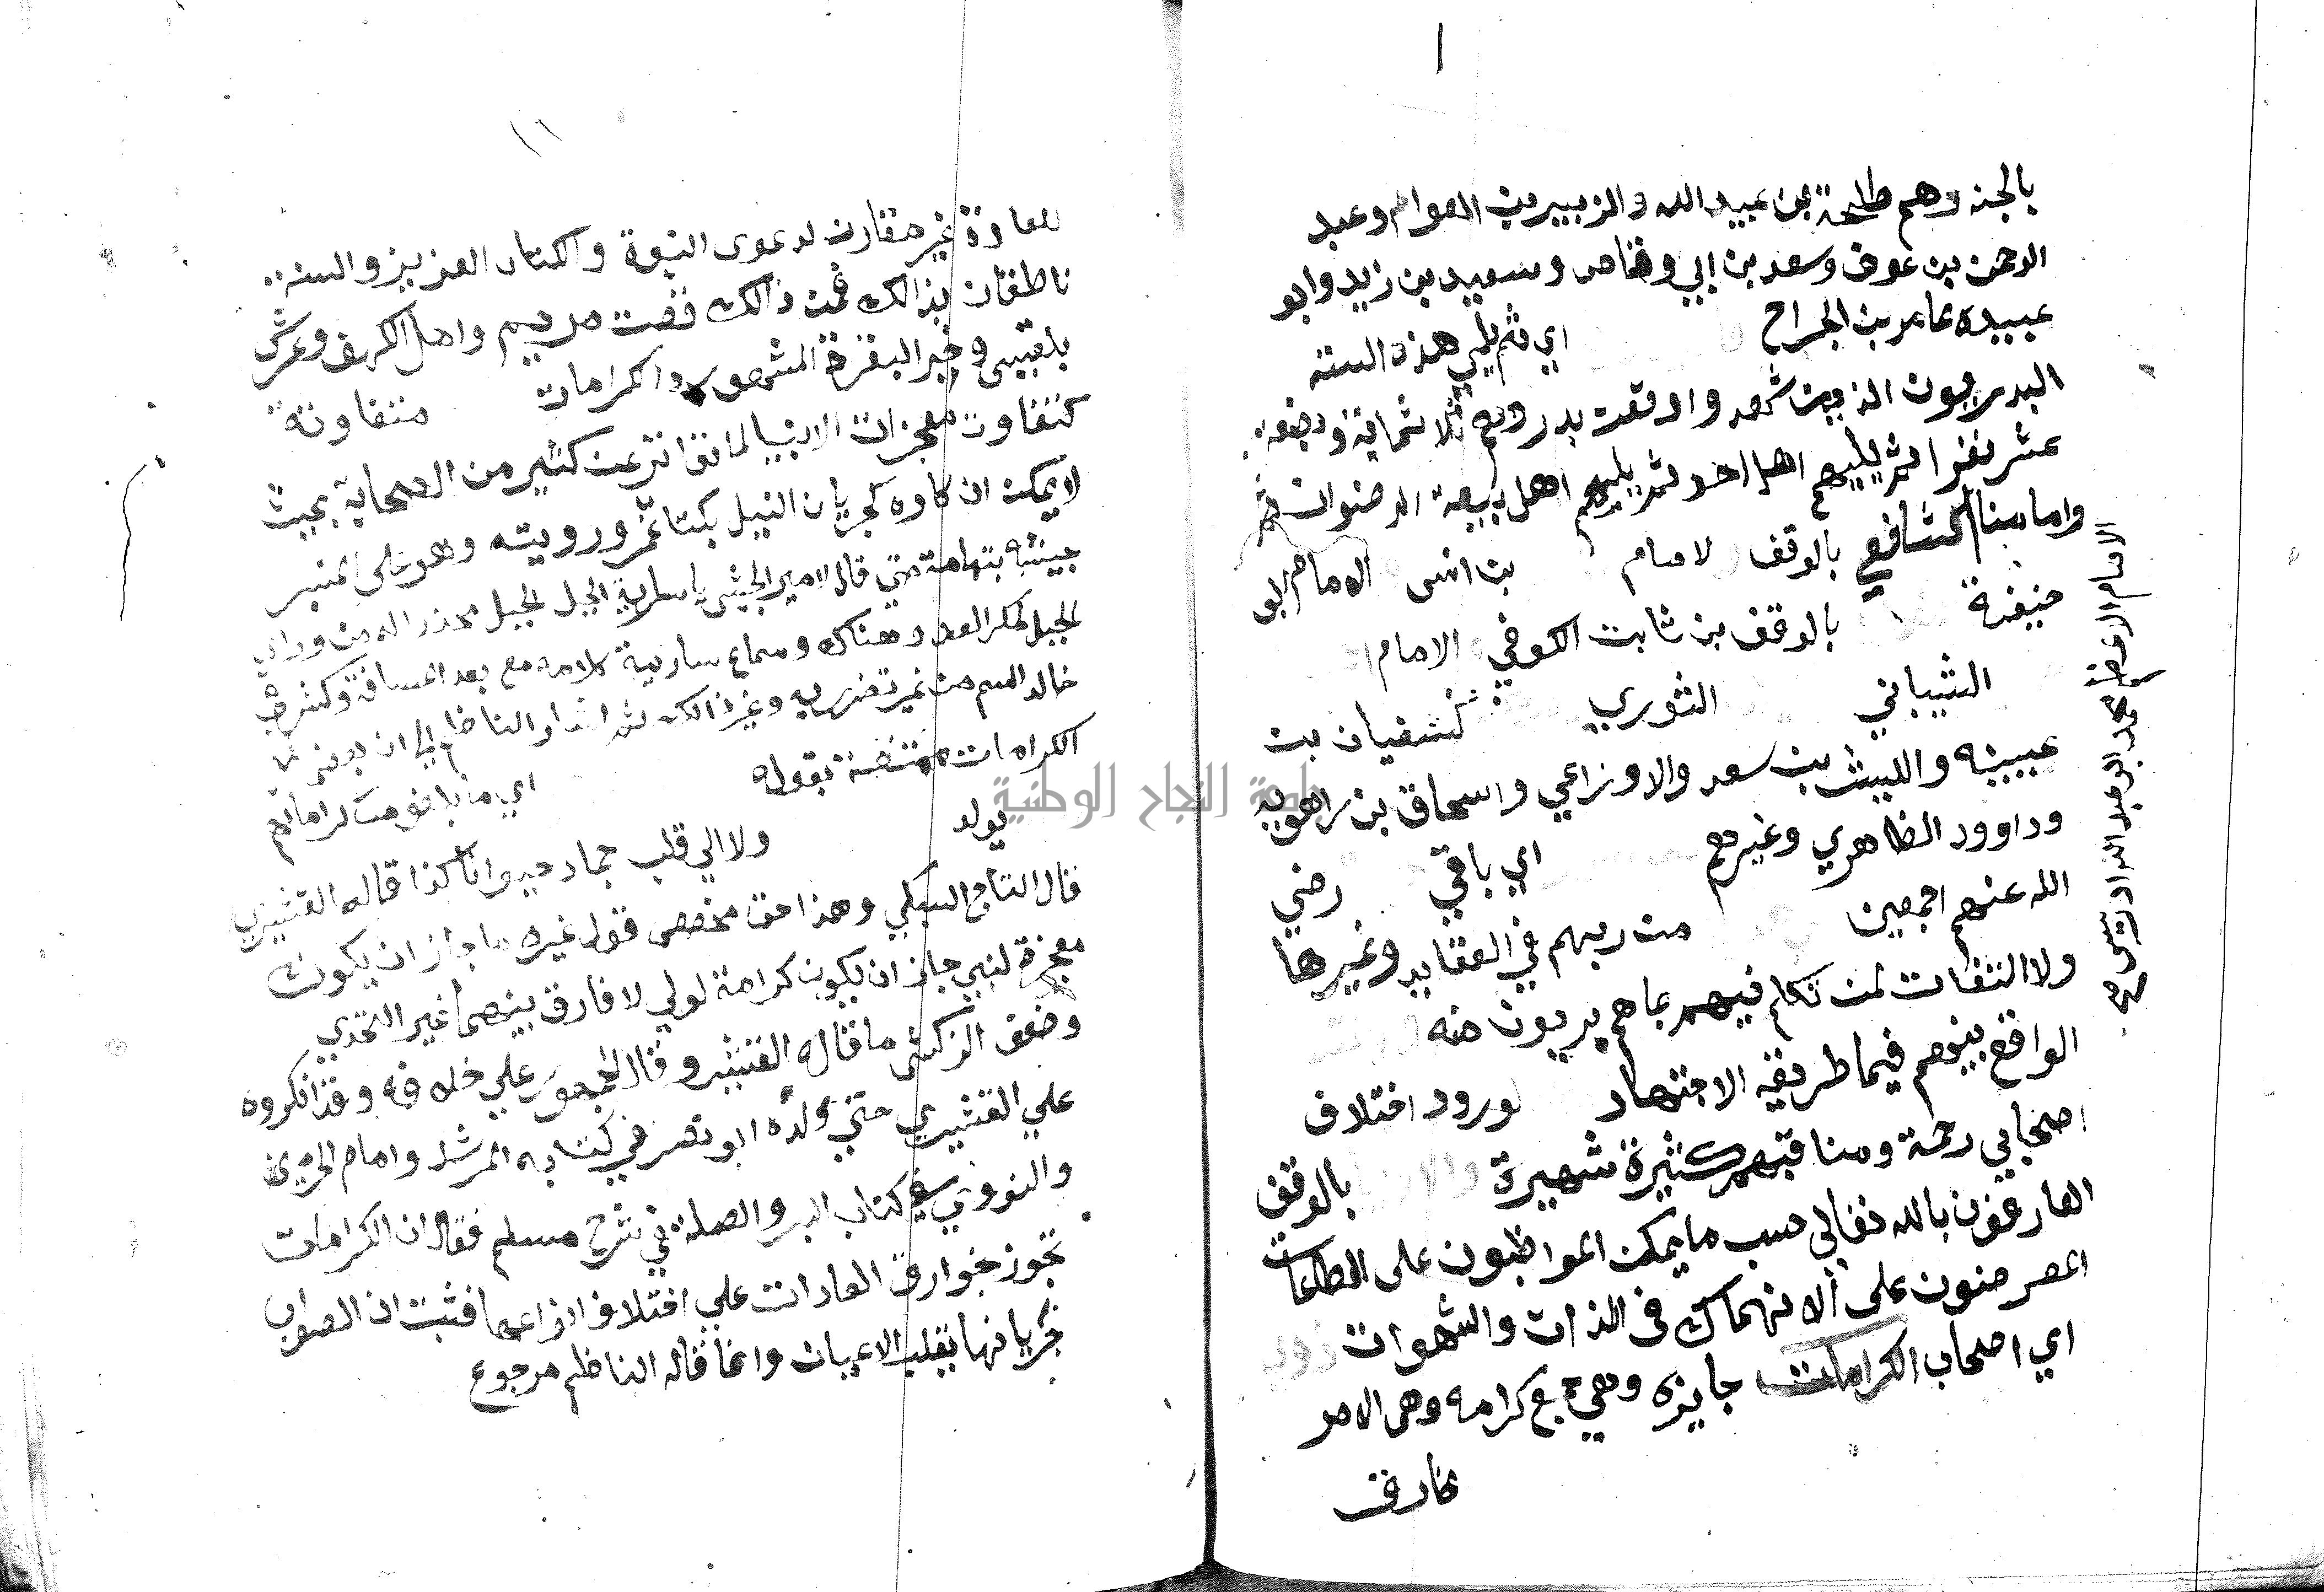 بالجنه وهم طلحة بن عبيد الله والزبير بن العوام وعبد
الرحمن بن عوف وسعد بن ابي وقاص وسعيد بن زيد وابو
عبيده عامر بن الجراح اي ثم يلي هذه الستة
البدريون الذين شهدوا وقعت بدر وهم ثلاثمائة وبضعة
عشر نفرا ثم يليهم اهل احد ثم يليهم اهل بيعة الرضوان ثم
واما منا الشافعي بالوقف لامام بن انس الامام ابو
حنيفة بالوقف بن ثابت الكوفي الامام
الشيباني الثوري كسفيان بن
عيينه والليث بن سعد والاوزاعي واسحاق بن راهويه
وداوود الظاهري وغيرهم اي باقي رضي
الله عنهم اجمعين من ربهم في العقايد وغيرها
ولا التفات لمن تكلم فيهم بما هم بريون منه
الواقع بينهم فيما طريقه الاجتهاد لورود اختلاف
اصحابي رحمة ومناقبهم كثيرة شهيرة بالوقف
العارفون بالله تعالي حسب ما يمكن المواظبون على الطاعات
المعرضون على الانهماك في الذات والشهوات
اي اصحاب الكرامات جايزه وهي جمع كرامه وهي الامر
خارق
الامام الاعظم محمد ابو عبد الله ادريس صح
١١
للعادة غير مقارن لدعوى النبوة والكتاب العزيز والسنه
ناطقان بذالك فمن ذالك قصت مريم واهل الكهف وعرش
بلقيس وخبر البقرة المشهور والكرامات متفاوتة
كتفاوت معجزات الانبيا لما تواتر عن كثير من الصحابة بحيث
لا يمكن انكاره كجريان النيل بكتاب عمر ورويته وهو على المنبر
جيشه بنهاوند حتي قال لامير الجيش يا سارية الجبل الجبل محذرا له من وراء
الجبل لمكر العدو هناك وسماع سارية كلامه مع بعد المسافة وكشرب
خالد السم من غير تضرر به وغير ذالك ثم اشار الناظم الي ان بعض
الكرامات ممتنعة بقوله اي ما بلغو من كراماتهم
يولد ولا الي قلب جماد حيوانا كذا قاله القشيري
قال التاج السبكي وهذا حق مخصص قول غيره ما جاز ان يكون
معجزة لنبي جاز ان يكون كرامة لولي لا فارق بينهما غير التحدي
وضعف الزركشي ما قاله القشير وقال الجمهور علي خلافه وقد انكروه
علي القشيري حتي ولده ابو نصر في كتابه المرشد وامام الحرمين
والنووي في كتاب البر والصلة في شرح مسلم فقال ان الكرامات
تجوز بخوارق العادات علي اختلاف انواعها فثبت ان الصواب
جريانها بقلب الاعيان وانما قاله الناظم مرجوع
جامعة النجاح الوطنية